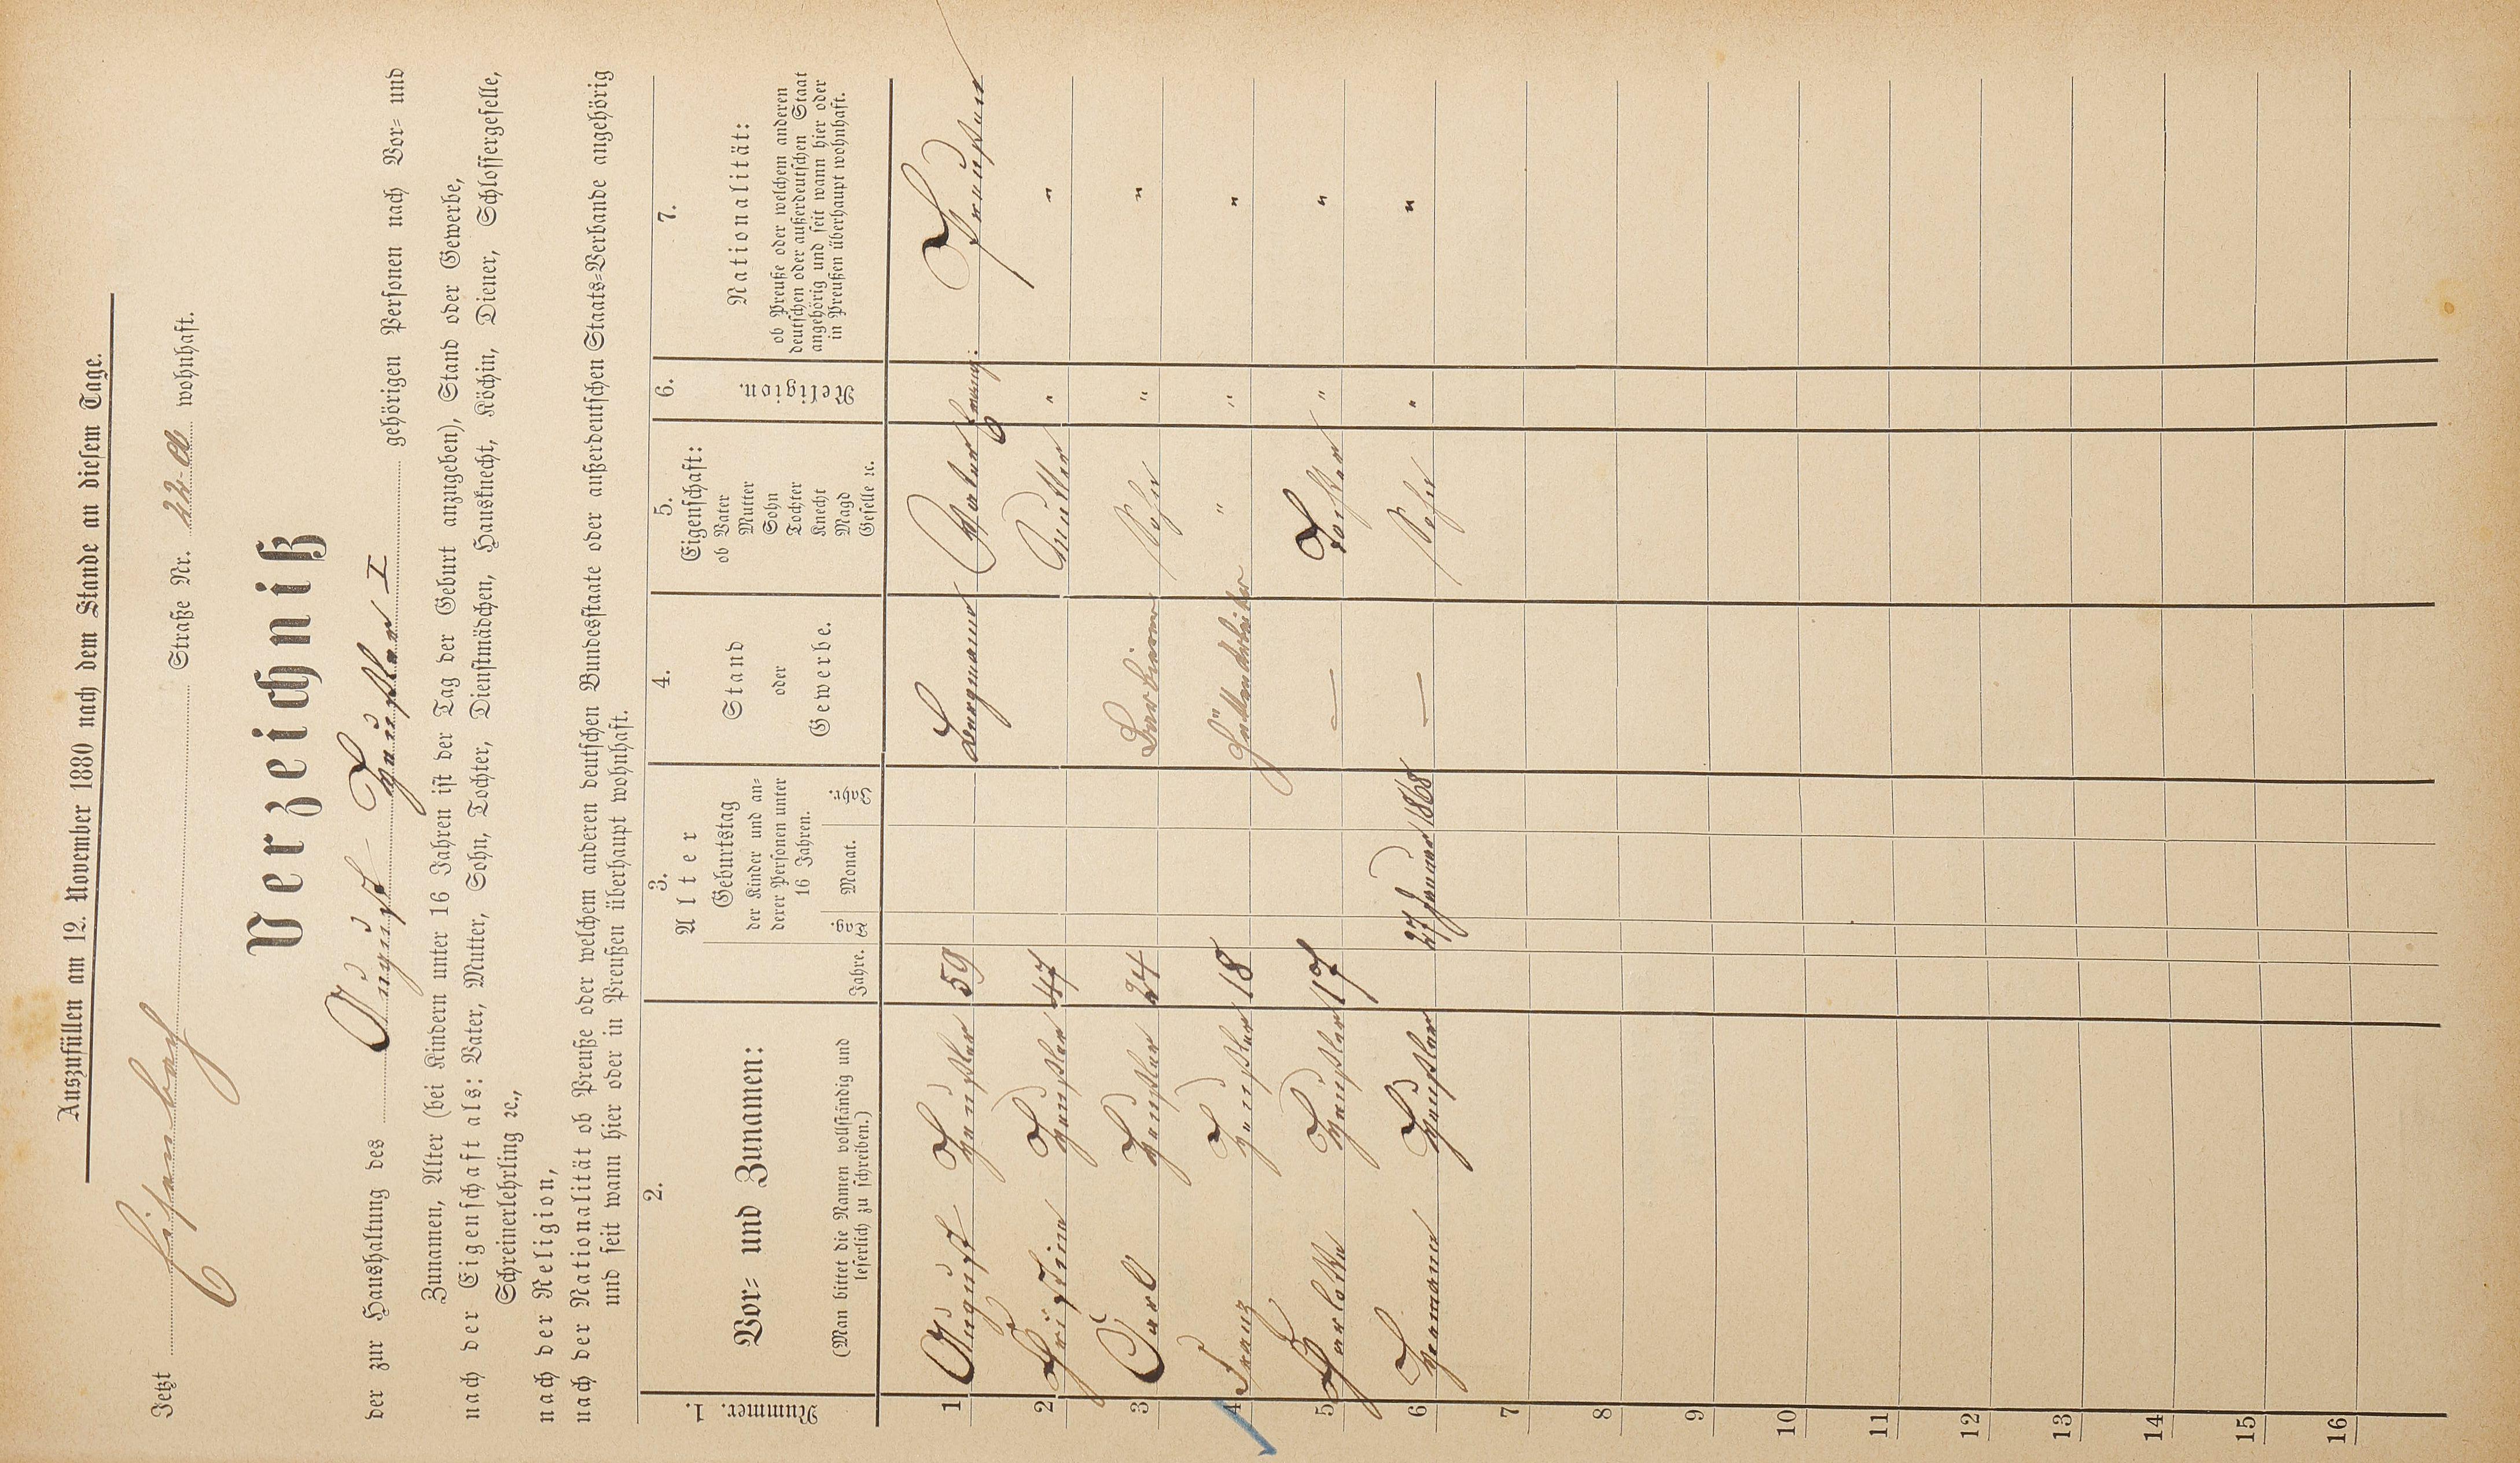 Auszufüllen am 12. November 1880 nach dem Stande an diesem Tage.
Jetzt Eisenbach Straße Nr. 22 a wohnhaft.
Verzeichniß
der zur Haushaltung des August Häußler I gehörigen Personen nach Vor= und
Zunamen, Alter (bei Kindern unter 16 Jahren ist der Tag der Geburt anzugeben), Stand oder Gewerbe,
nach der Eigenschaft als: Vater, Mutter, Sohn, Tochter, Dienstmädchen, Hausknecht, Köchin, Diener, Schlossergeselle,
Schreinerlehrling ꝛc.,
nach der Religion,
nach der Nationalität ob Preuße oder welchem anderen deutschen Bundesstaate oder außerdeutschen Staats=Verbande angehörig
und seit wann hier oder in Preußen überhaupt wohnhaft.
Nummer. 1.
2.
Vor= und Zunamen:
(Man bittet die Namen vollständig und
leserlich zu schreiben.)
3.
Alter
Jahre.
Geburtstag
der Kinder und an=
derer Personen unter
16 Jahren.
Tag. Monat. Jahr.
4.
Stand
oder
Gewerbe.
5.
Eigenschaft:
ob Vater
Mutter
Sohn
Tochter
Knecht
Magd
Geselle ꝛc.
6.
Religion.
7.
Nationalität:
ob Preuße oder welchem anderen
deutschen oder außerdeutschen Staat
angehörig und seit wann hier oder
in Preußen überhaupt wohnhaft.
1 August Häußler 59 Bergmann Vater Evang: Preußen
2 Häußler 47 Mutter " "
3 Carl Häußler 24 Sohn " "
4 Franz Häußler 18 Hüttenarbeiter " " "
5 Häußler 17 — Tochter " "
6 Hermann Häußler 27 Januar 1868 — Sohn " "
7
8
9
10
11
12
13
14
15
16